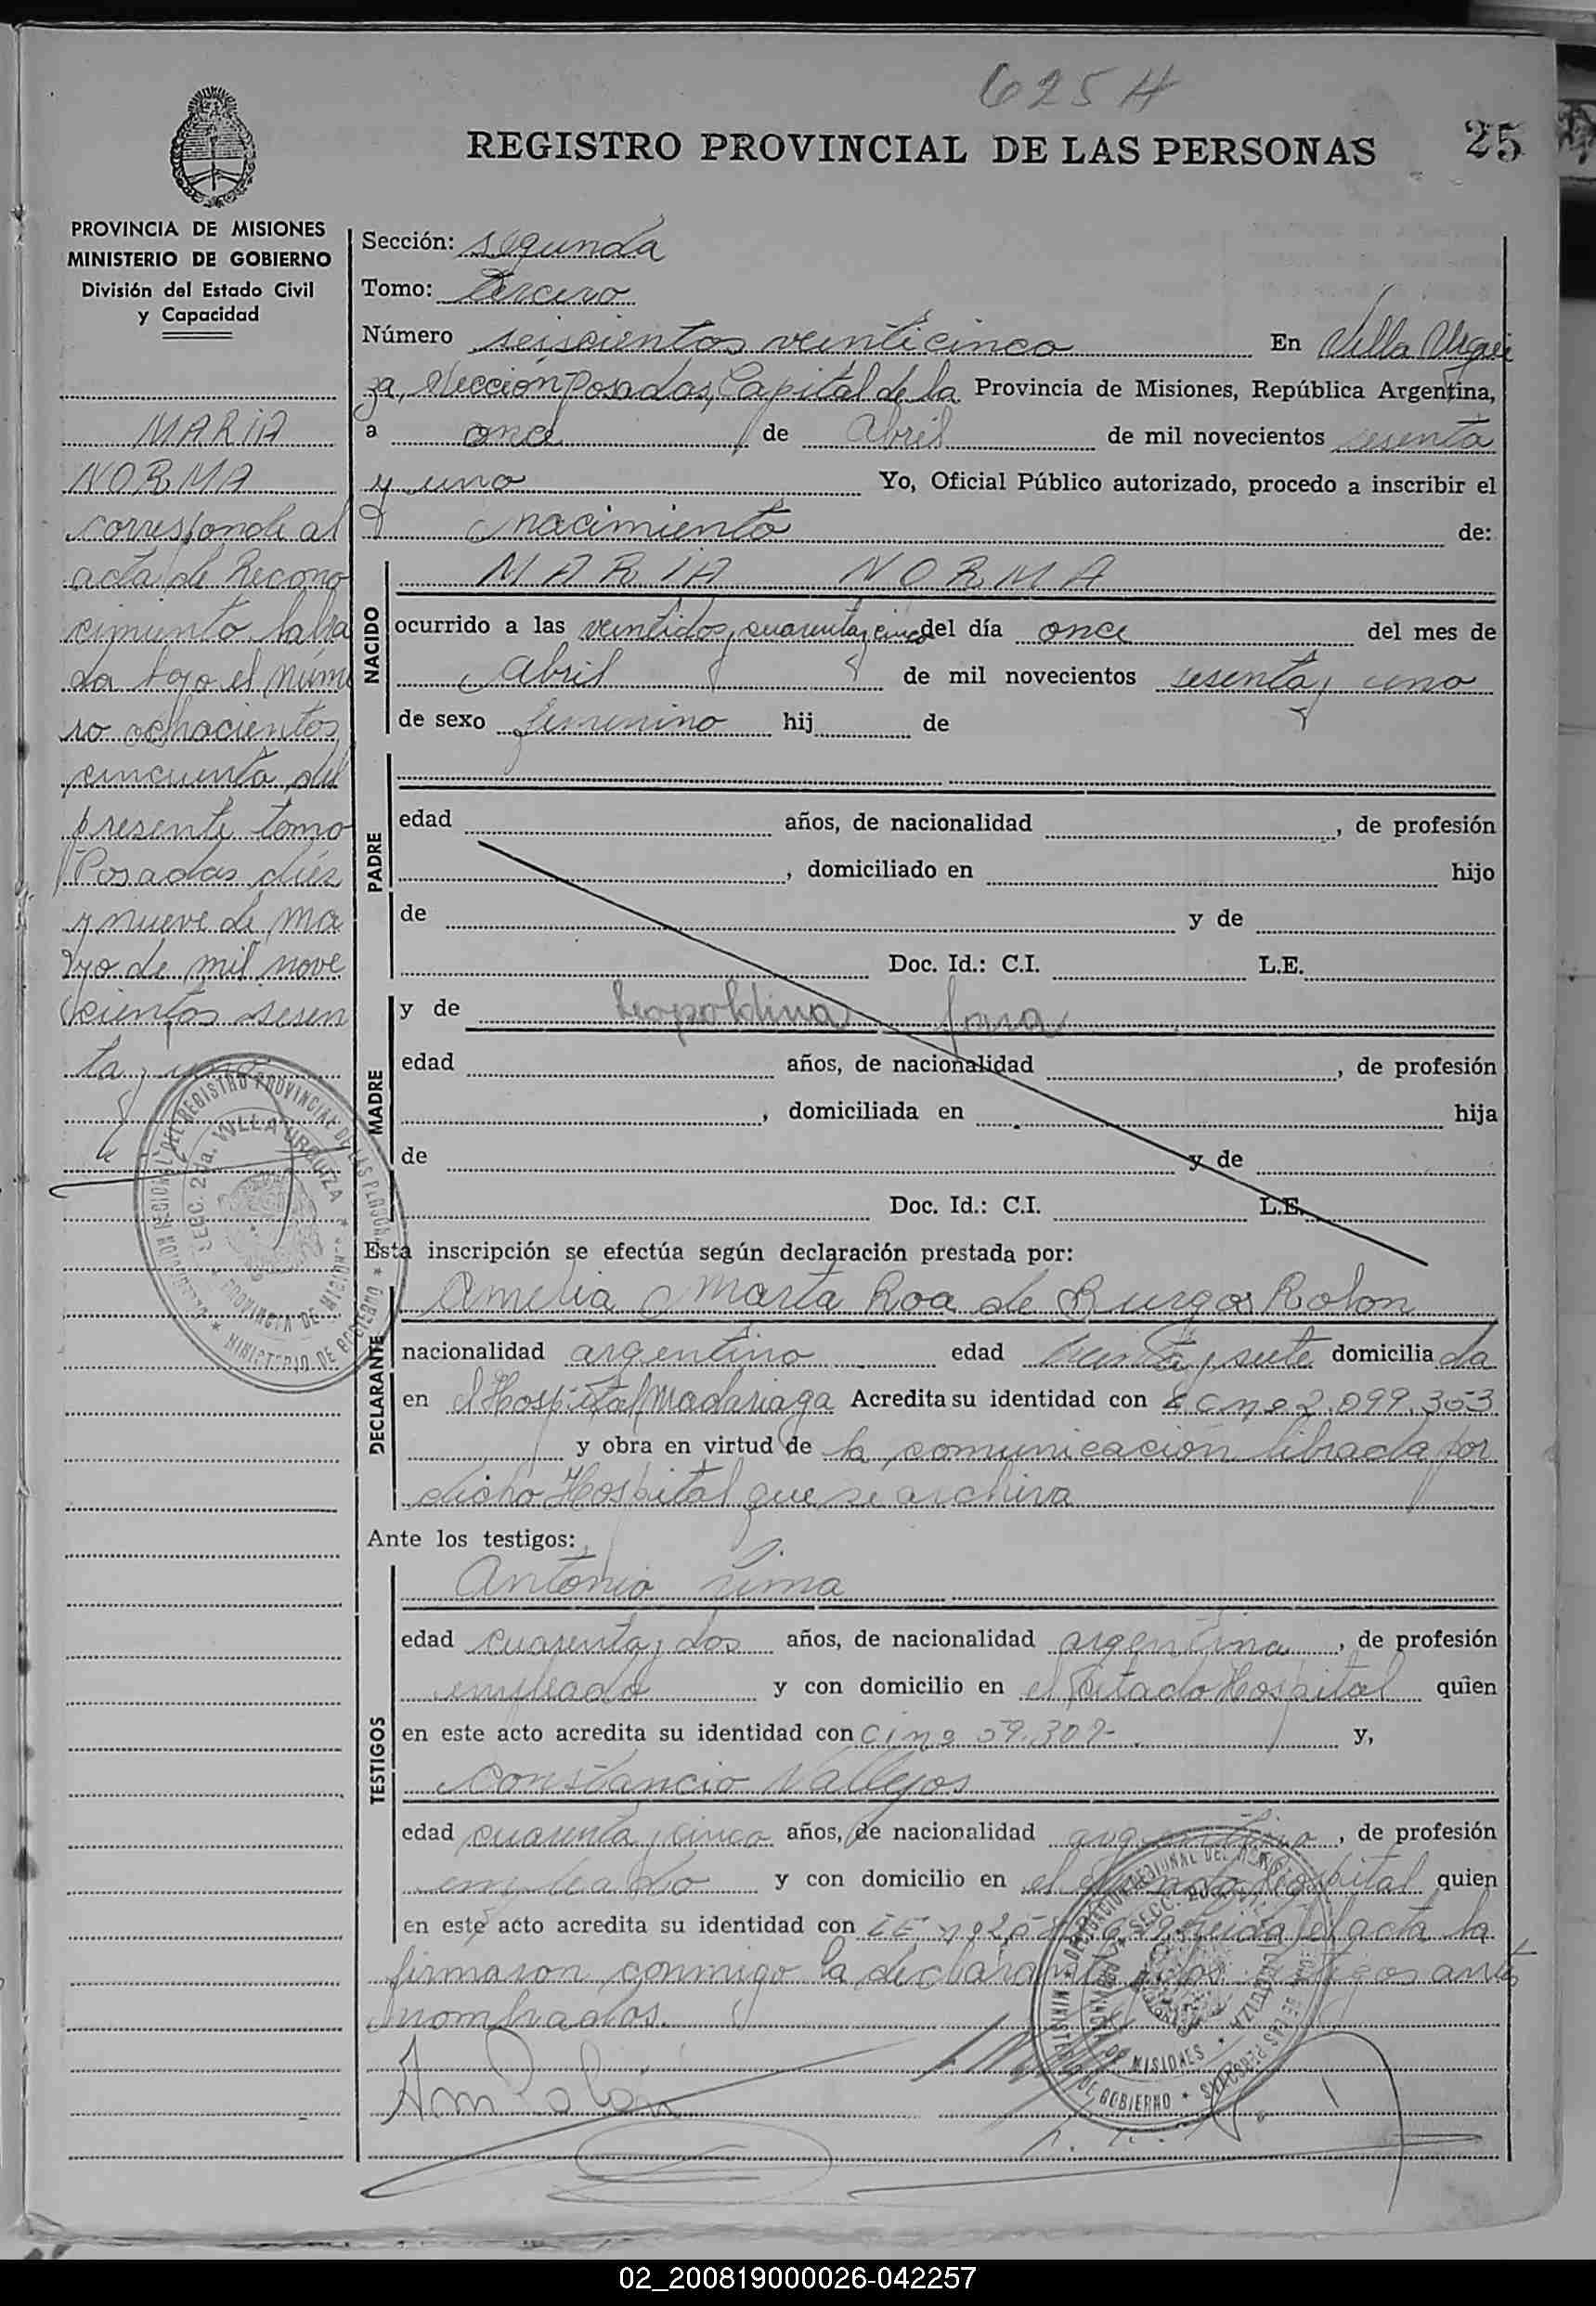 625 H
REGISTRO PROVINCIAL DE LAS PERSONAS
25
PROVINCIA DE MISIONES
MINISTERIO DE GOBIERNO
División del Estado Civil
y Capacidad
MARIA
NORMA
corresponde al
acta de Recono
cimiento labra
da bajo el núme
ro ochocientos
cincuenta del
presente tomo
Posadas diez
y nueve de ma
yo de mil nove
cientos sesen
ta y uno
Sección: segunda
Tomo: Tercero
Número seiscientos veinticinco En Villa Urqui
za, Sección Posadas, Capital de la Provincia de Misiones, República Argentina,
a once de Abril de mil novecientos sesenta
y uno Yo, Oficial Público autorizado, procedo a inscribir el
nacimiento de:
NACIDO
MARIA NORMA
ocurrido a las veintidos y cuarenta y cinco del día once del mes de
Abril de mil novecientos sesenta y uno
de sexo femenino hij de
PADRE
edad años, de nacionalidad , de profesión
, domiciliado en hijo
de y de
Doc. Id.: C.I. L.E.
MADRE
y de Leopoldina
edad años, de nacionalidad , de profesión
, domiciliada en hija
de y de
Doc. Id.: C.I. L.E.
Esta inscripción se efectúa según declaración prestada por:
DECLARANTE
Amelia Marta Roa de Burgos Rolon
nacionalidad argentina edad treinta y siete domicilia da
en el Hospital Madariaga Acredita su identidad con 2.099.353
y obra en virtud de la comunicación librada por
dicho Hospital que se archiva
Ante los testigos:
TESTIGOS
Antonio Lima
edad cuarenta y dos años, de nacionalidad argentina , de profesión
empleado y con domicilio en el citado Hospital quien
en este acto acredita su identidad con CI nº y,
Constancio Vallejos
edad cuarenta y cinco años, de nacionalidad argentino , de profesión
empleado y con domicilio en el Hospital quien
en este acto acredita su identidad con LE nº leida el acta la
firmaron conmigo la declarante y los testigos antes
nombrados.
DELEGACION REGIONAL DEL REGISTRO PROVINCIAL DE LAS PERSONAS
SECC. 2da. VILLA URQUIZA
PROVINCIA DE MISIONES
MINISTERIO DE GOBIERNO
02_200819000026-042257